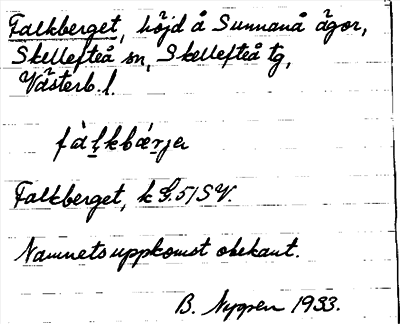 Falkberget, höjd å Sunnanå ägor,
Skellefteå sn, Skellefteå tg,
Västerb. l.
fàḷkbǽrjɐ
Falkberget, k G. 5/SV.
Namnets uppkomst obekant.
B. Nygren 1933.